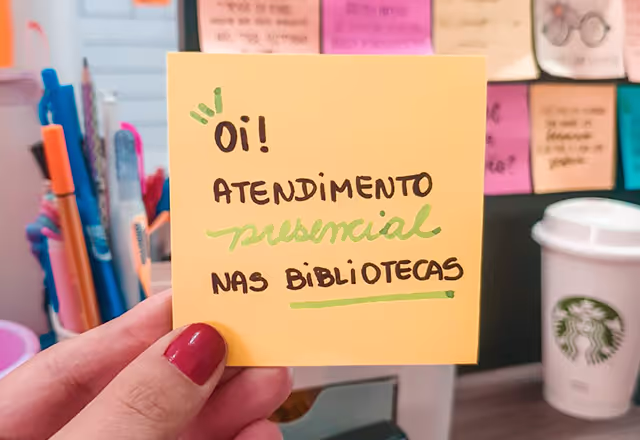 Oi!
ATENDIMENTO
presencial
NAS BIBLIOTECAS